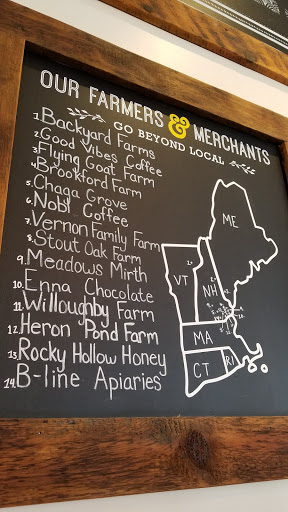 OUR FARMERS & MERCHANTS
GO BEYOND LOCAL
1. Backyard Farms
2. Good Vibes Coffee
3. Flying Goat Farm
4. Brookford Farm
5. Chaga Grove
6. Nobl Coffee
7. Vernon Family Farm
8. Stout Oak Farm
9. Meadows Mirth
10. Enna Chocolate
11. Willoughby Farm
12. Heron Pond Farm
13. Rocky Hollow Honey
14. B-line Apiaries
ME
VT
NH
MA
CT
RI